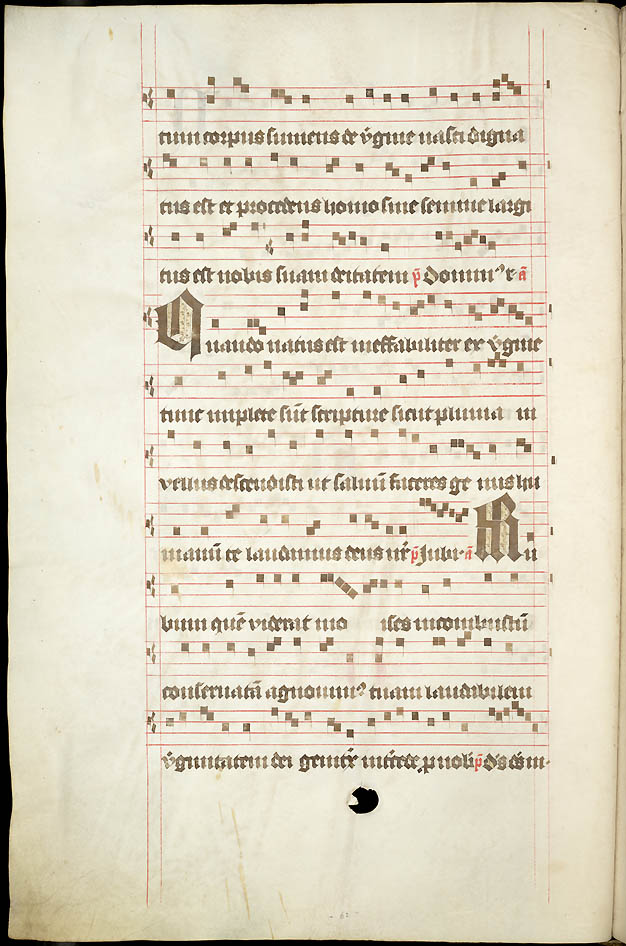 tum corpus sumens de v̄gine nasci digna
tus est et procedens homo sine semine largi
tus est nobis suam deitatem p̄ Domin⁹ r̄ ā
Quando natus est ineffabiliter ex v̄gine
tunc implete sūt scripture sicut pluuia in
vellus descendisti ut saluū faceres ge nus hu
manū te laudamus deus nr̄ p̄ Jubi ā Ru
bum quē viderat mo ises incombustū
conseruatā agnouim⁹ tuam laudabilem
v̄ginitatem dei genitˣ int̄cede p nobis p̄ ds̄